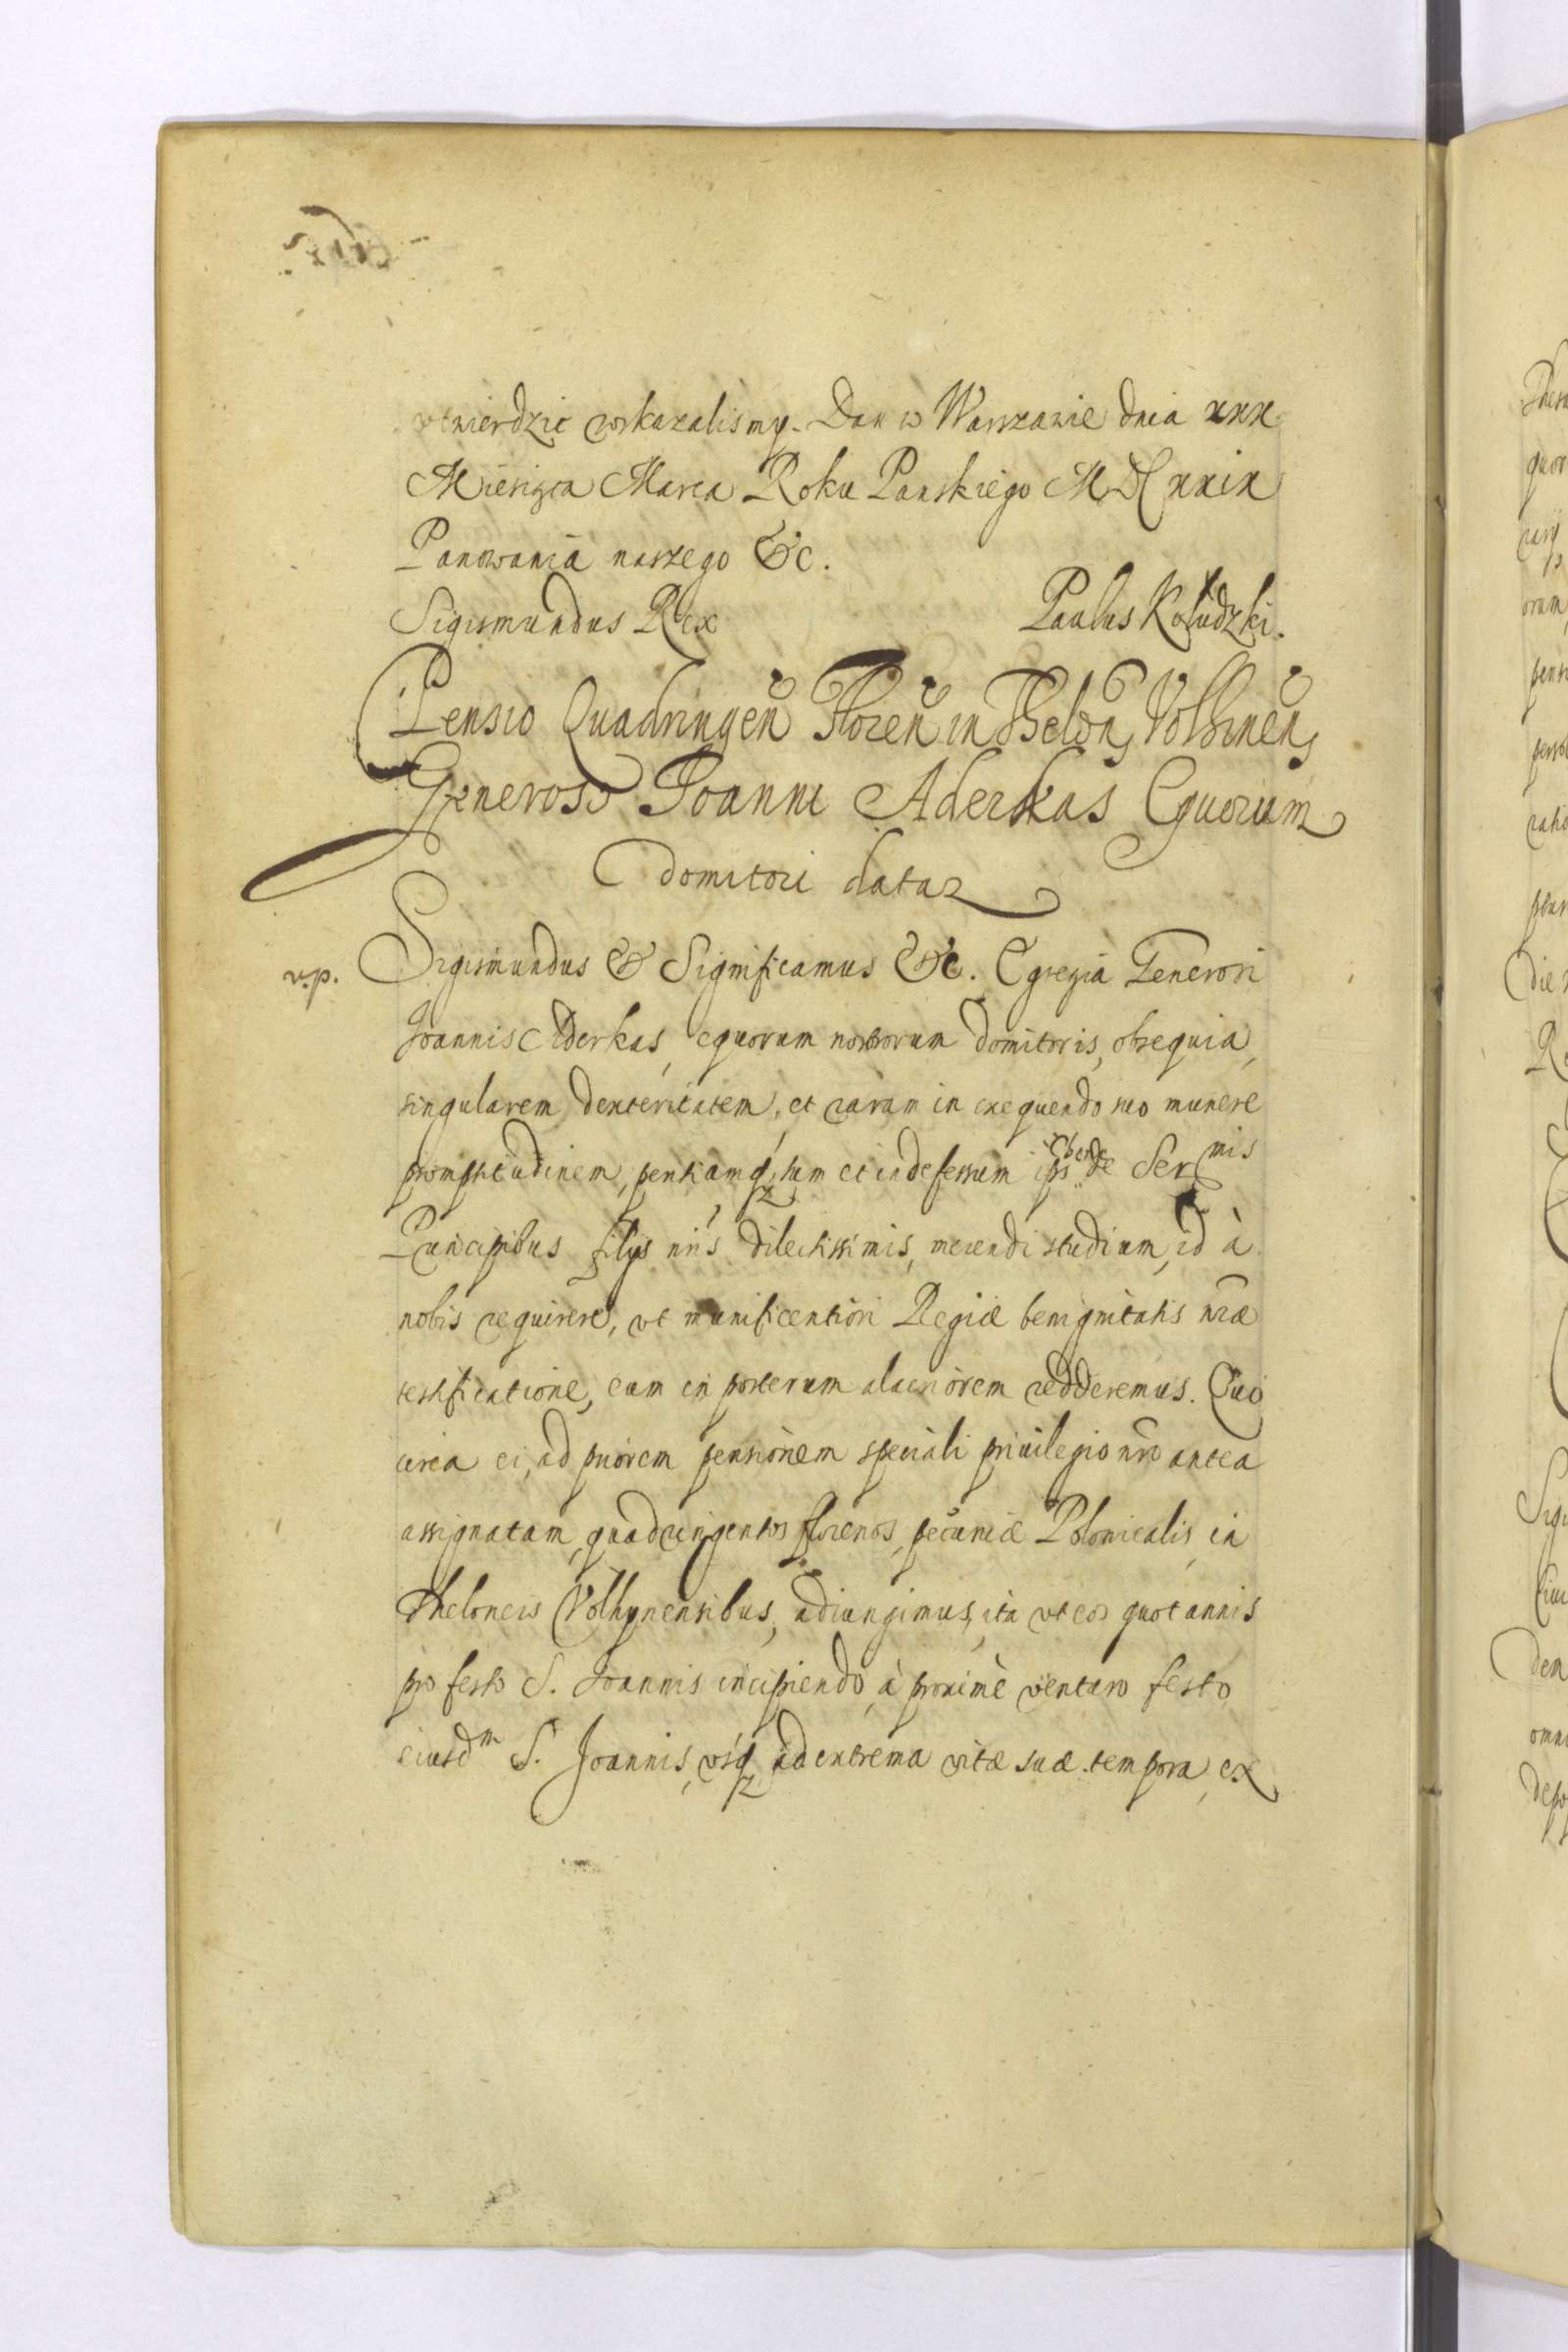 vtwierdzic roskazalismy. Dan w Warszawie dnia xxx
Miesiąca Marca Roku Panskiego MDCxxix
Panowania naszego &c.
Sigismundus Rex Paulus Koludzki.
Pensio Quadringen̄ Floren̄ in Thelon, Volhinen,
Generoso Joanni Aderkas Equorum
domitori datar
v.p. Sigismundus & Significamus &c. Egregia Generosi
Joannis Aderkas, equorum nostrorum domitoris, obsequia,
singularem dexteritatem, et raram in exequendo suo munere
promptitudinem, peritiamq, tum et indefessum de Ser mis
Principibus filijs nr̄is dilectissimis, merendi studium, id à
nobis requirere, vt munificentiori Regiæ benignitatis nr̄æ
testificatione, eum in posterum alacriorem redderemus. Quo
circa ei, ad priorem pensionem speciali priuilegio nr̄o antea
assignatam, quadringentos florenos, pecuniæ Polonicalis, in
Theloneis Volhynensibus, adiungimus, ita vt eos quotannis
pro festo S. Joannis incipiendo, à proximè venturo festo
eiusdm S. Joannis, vsq ad extrema vitæ suæ tempora, ex